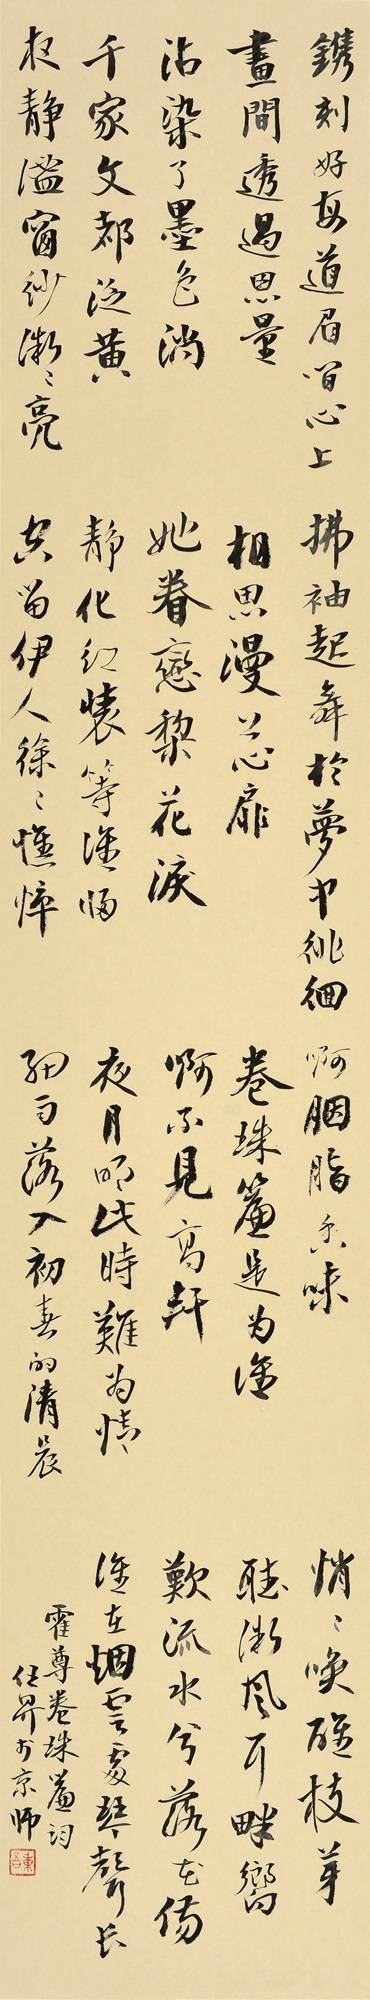 鐫刻好每道眉間心上
畫間透過思量
沾染了墨色淌
千家文都泛黃
夜静溢窗紗微〻亮
拂袖起舞於夢中徘徊
相思漫上心扉
她眷戀黎花淚
静化紅裝等誰歸
空留伊人徐〻憔悴
啊胭脂香味
卷珠簾是为誰
啊不見高軒
夜月明此時難为情
細雨落入初春的清晨
悄〻喚醒枝芽
聽微風耳畔響
歎流水兮落花傷
誰在烟雲處琴聲長
霍尊卷珠簾詞
任昇於京師